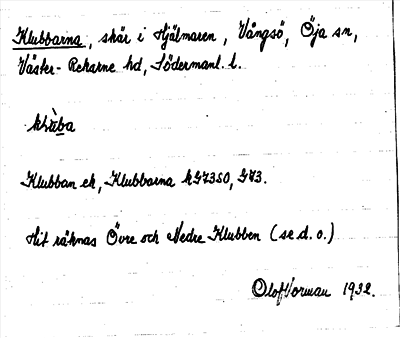 Klubbarna, skär i Hjälmaren, Vångsö, Öja sn,
Väster-Rekarne hd, Södermanl. l.
klùba
Klubban ek, Klubbarna kG7350, G73.
Hit räknas Övre och Nedre Klubben (se d. o.)
Olof Norman 1932.